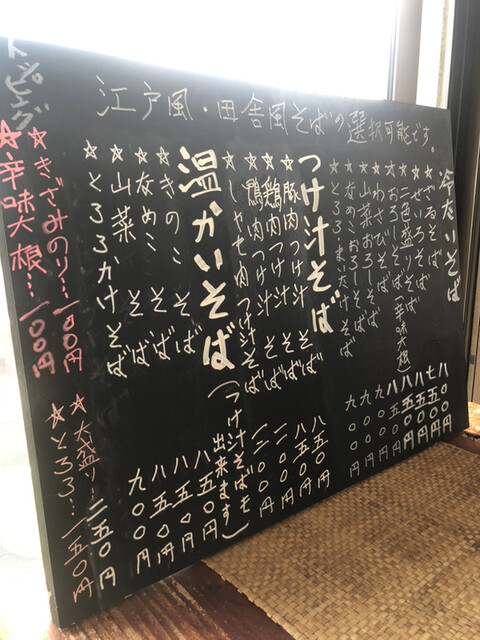 江戸風・田舎風そばの選択可能です。
冷たいそば
☆ざるそば 八〇〇円
☆せいろそば 七五〇円
☆二色盛りそば 八五〇円
☆おしぼりそば(辛味大根) 八五〇円
☆わさびそば 八五〇円
☆山菜おろしそば 九〇〇円
☆なめこおろしそば 九〇〇円
☆とろろまいたけそば 九〇〇円
つけ汁そば
☆豚肉つけ汁そば 八五〇円
☆鶏肉つけ汁そば 八五〇円
☆鴨肉つけ汁そば
☆しゃも肉つけ汁そば
温かいそば(つけ汁そばモ出来ます)
☆きのこそば 八五〇円
☆なめこそば 八五〇円
☆山菜そば 八五〇円
☆とろろかけそば 九〇〇円
トッピング
☆きざみのり…一〇〇円
☆大盛り…二五〇円
☆辛味大根…一〇〇円
☆とろろ…一五〇円